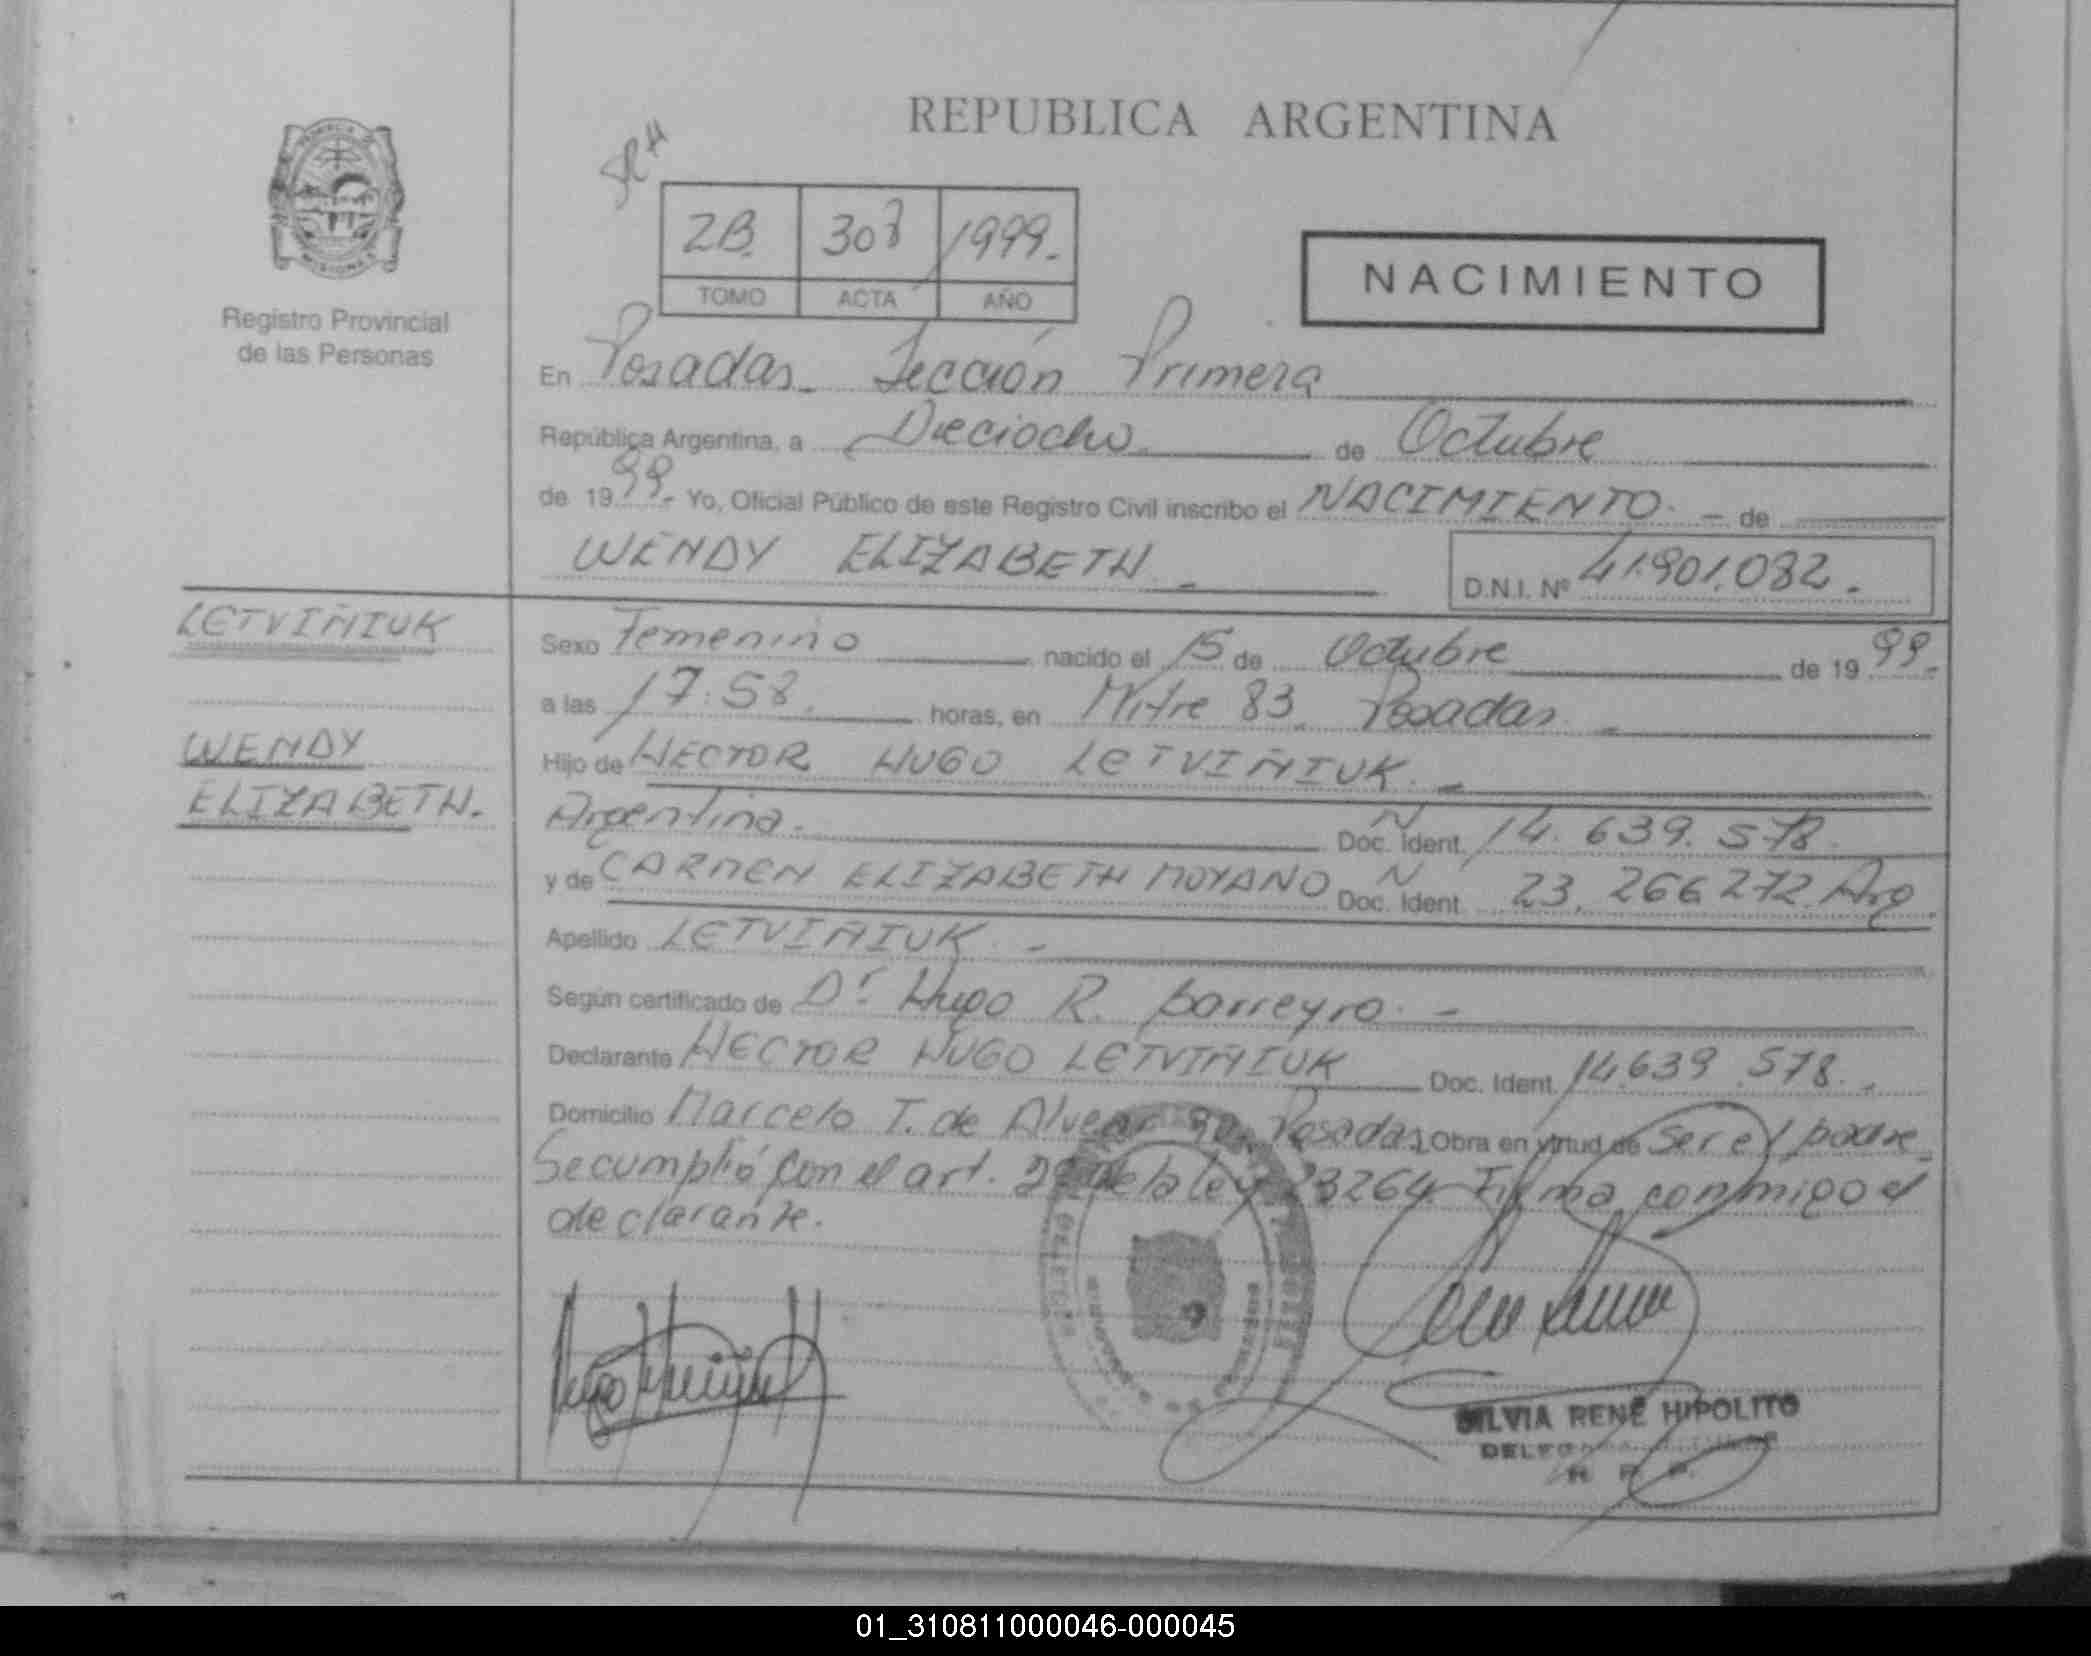 REPUBLICA ARGENTINA
SRH
2B. 308 1999.
TOMO ACTA AÑO
NACIMIENTO
PROVINCIA DE
MISIONES
Registro Provincial
de las Personas
En Posadas. Sección Primera
República Argentina, a Dieciocho de Octubre
de 1999.- Yo, Oficial Público de este Registro Civil inscribo el NACIMIENTO. - de
WENDY ELIZABETH. - D.N.I. Nº 41.901.082.
LETVIÑIUK
WENDY
ELIZABETH.
Sexo Femenino nacido el 15 de Octubre de 1999.
a las 17:58. horas, en Mitre 83. Posadas. -
Hijo de HECTOR HUGO LETVIÑIUK. -
Argentina. - N Doc. Ident. 14.639.578.
y de CARMEN ELIZABETH MOYANO N Doc. Ident. 23.266272. Arg.
Apellido LETVIÑIUK. -
Según certificado de Dr Hugo R. barreyro. -
Declarante HECTOR HUGO LETVIÑIUK Doc. Ident. 14.639.578. -
Domicilio Marcelo T. de Alvear Posadas. Obra en virtud de ser el padre.
Se cumplió con el art. de la ley 23264 Firma conmigo el
declarante.
SILVIA RENE HIPOLITO
R. P. P.
01_310811000046-000045